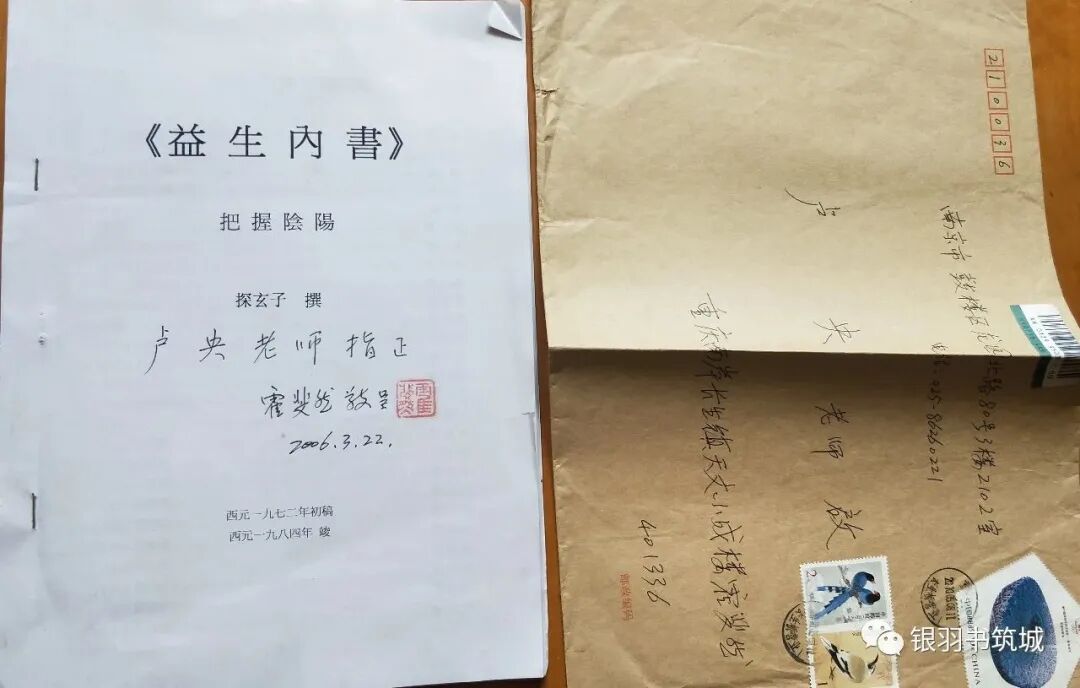 《益生內書》
把握陰陽
探玄子 撰
卢央老师指正
霍斐然敬呈
2006.3.22.
西元一九七二年初稿
西元一九八四年 竣
210036
南京市鼓楼区
北路80号3楼2102室
电话:025-86260221
卢 央 老师 启
重庆南岸长生镇天文小成楼霍斐然
401336
邮政编码
CHINA
银羽书筑城